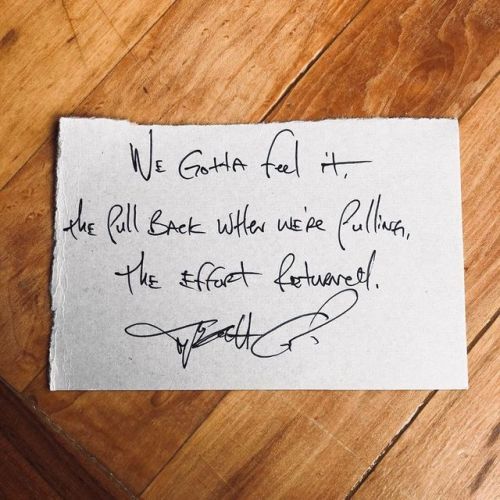 We Gotta feel it,
the pull Back when we're pulling,
the effort returned.